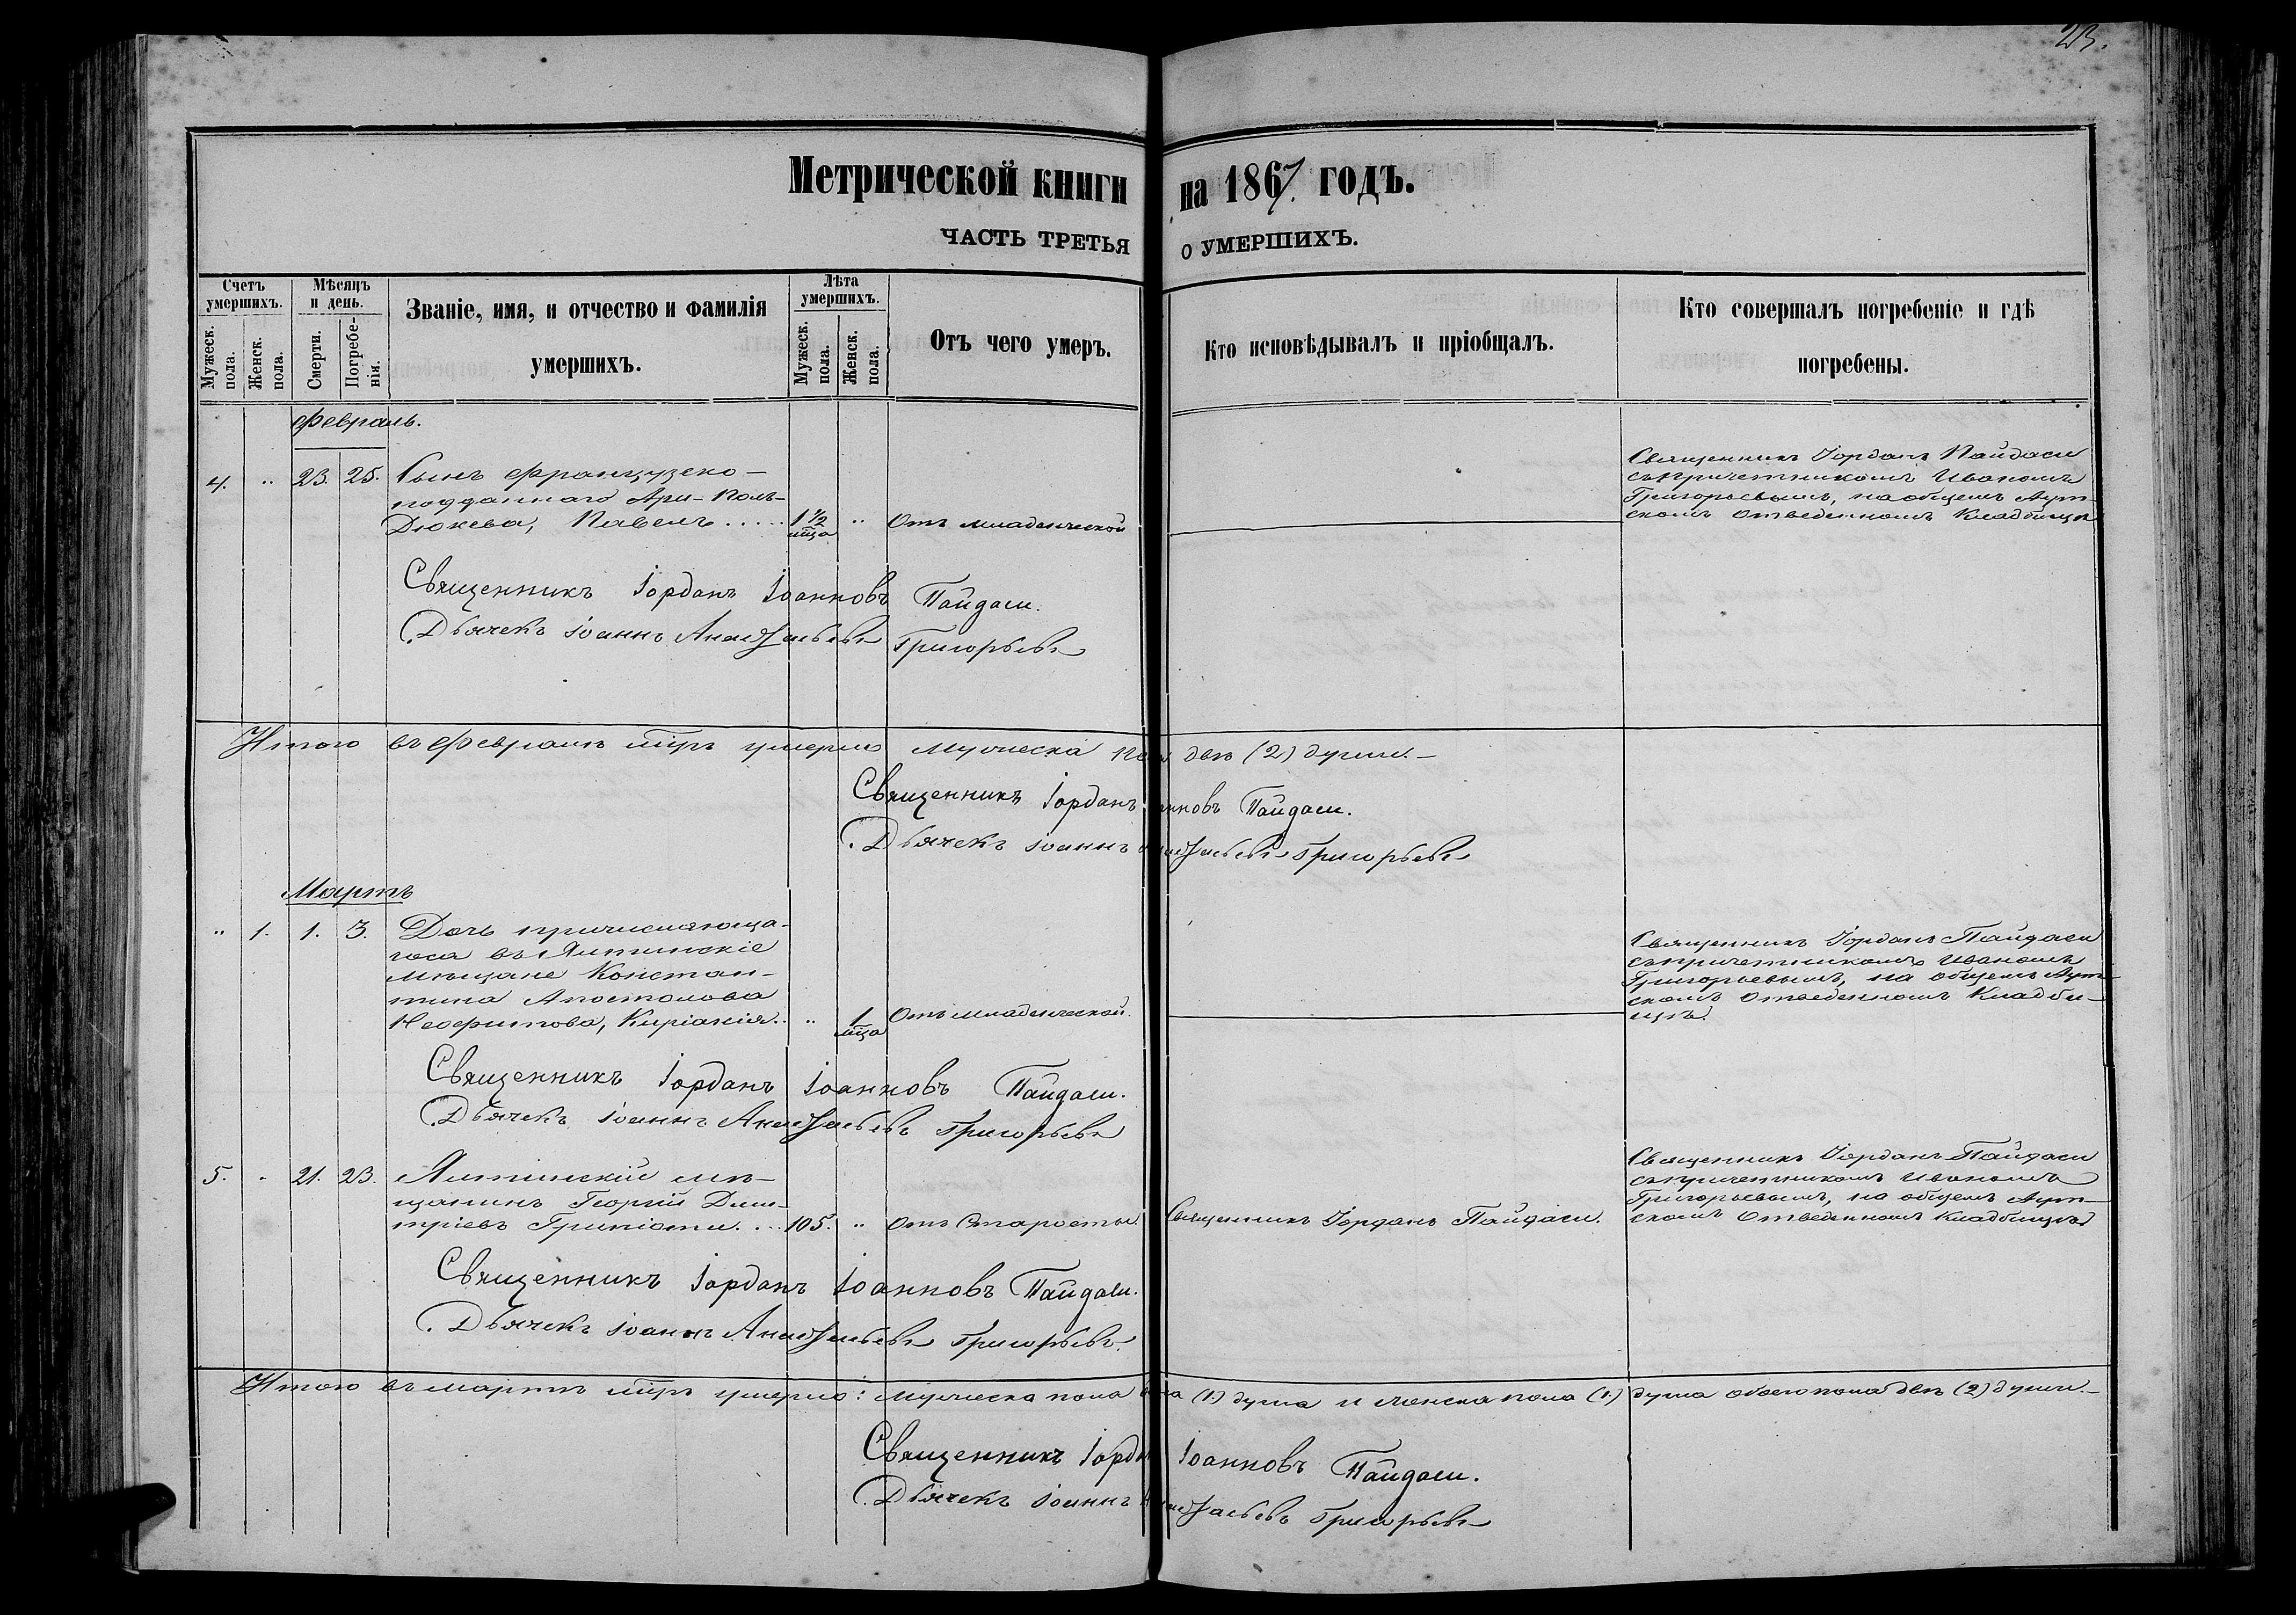 23.
Метрической книги на 1867. годъ.
ЧАСТЬ ТРЕТЬЯ О УМЕРШИХЪ.
Счетъ умершихъ.
Мужеск. пола.
Женск. пола.
Мѣсяцъ и день.
Смерти.
Погребенія.
Званіе, имя, и отчество и фамилія
умершихъ.
Лѣта умершихъ.
Мужеск. пола.
Женск. пола.
Отъ чего умеръ.
Кто исповѣдывалъ и пріобщалъ.
Кто совершалъ погребеніе и гдѣ
погребены.
Февраль.
4. " 23. 25. Сынъ Французско-
подданнаго Ари-Поль-
Дюкева, Павелъ..... 1 1/2 мца " Отъ младенческой
Священникъ Іорданъ Пайдаси
съ причетникомъ Иваномъ
Григорьевымъ, на общемъ Аут-
скомъ отведенномъ Кладбищѣ
Священникъ Іорданъ Іоанновъ Пайдаси.
Дьячекъ Іоаннъ Григорьевъ
Итого въ Февралѣ мцѣ умерло мужеска пола двѣ (2) души.-
Священникъ Іорданъ Іоанновъ Пайдаси.
Дьячекъ Іоаннъ Григорьевъ
Мартъ
" 1. 1. 3. Дочь причисляюща-
гося въ Ялтинскіе
Мѣщане Констан-
тина Апостолова
Неофитова, Киріакія.. " 1 мца Отъ младенческой.
Священникъ Іорданъ Пайдаси
съ причетникомъ Иваномъ
Григорьевымъ, на общемъ Аут-
скомъ отведенномъ Кладби-
щѣ.
Священникъ Іорданъ Іоанновъ Пайдаси.
Дьячекъ Іоаннъ Григорьевъ
5. " 21. 23. Ялтинскій мѣ-
щанинъ Георгій Дми-
тріевъ Грипіоти.... 105. " Отъ Старости Священникъ Іорданъ Пайдаси.
Священникъ Іорданъ Пайдаси
съ причетникомъ Иваномъ
Григорьевымъ, на общемъ Аут-
скомъ отведенномъ кладбищѣ
Священникъ Іорданъ Іоанновъ Пайдаси.
Дьячекъ Іоаннъ Григорьевъ.
Итого въ мартѣ мцѣ умерло: Мужеска пола одна (1.) душа и женска пола (1.) душа обоего пола двѣ (2) души.-
Священникъ Іорданъ Іоанновъ Пайдаси.
Дьячекъ Іоаннъ Григорьевъ